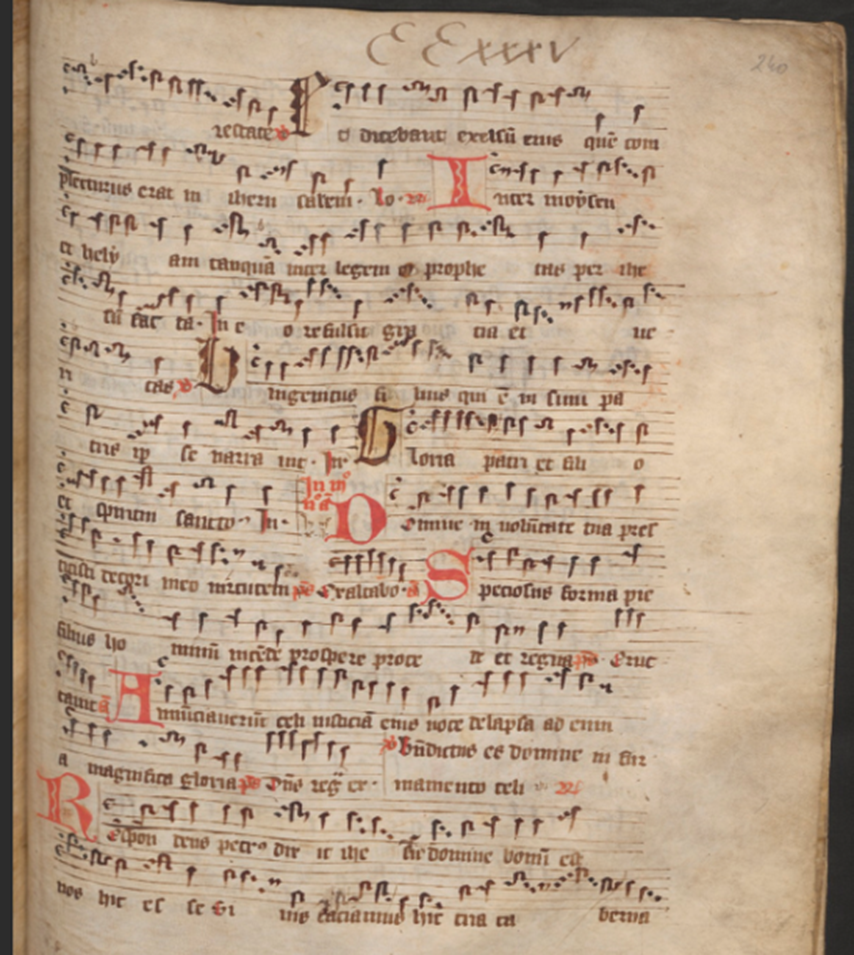 CCxxxv
240
restate V Et dicebant excessū eius quē com
pleturus erat in iherusalem. Lo. Inter moysen
et hely am tanquā inter legem et prophe tas per ihe
sū fac ta. In e o refulsit gra tia et ue
ri tas V Unigenitus fi lius qui ē in sinu pa
tris ip se narra uit. In. Gloria patri et fili o
et spiritui sancto. In. Domine in uolūtate tua pres
titisti decori meo uirtutem ps Exaltabo. a Speciosus forma pre
filiis ho minū intēde prospere proce de et regna ps Eruc
tauit a Annūciauerūt celi iusticiā eius uoce delapsa ad eum
a magnifica gloria ps Dn̄s reg
V Bn̄dictus es domine in fir
mamento celi
Respon dens petrᵒ dix it ihe su domine bonū est
nos hic es se si uis faciamus hic tria ta berna